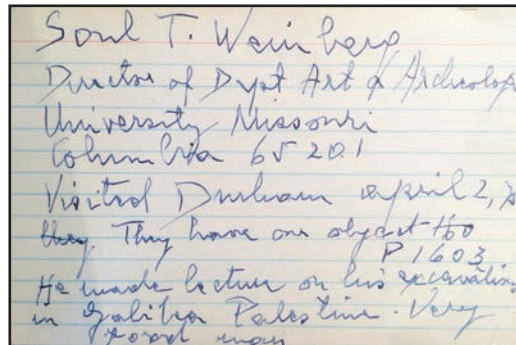 Soul T. Weinberg
Director of Dept Art & Archeology
University Missouri
Columbia 65201
Visited Durham april 2, 
they. They have one object too
P 1603
He made lecture on his excavations
in Galilea Palestine. Very
good man